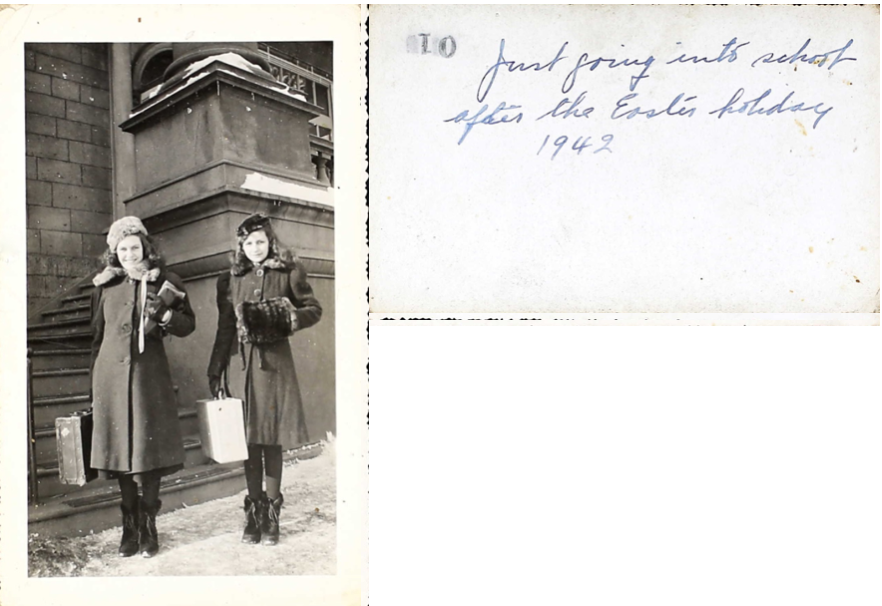 10
Just going into school
after the Easter holiday
1942